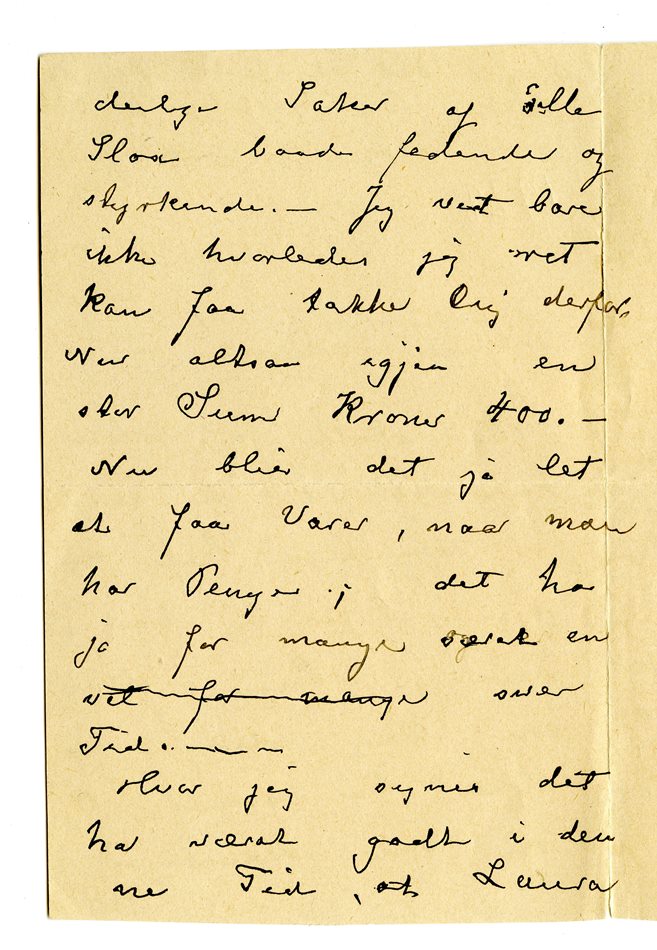 deilige Saker af alle
Slags baade fedende og
styrkende. — Jeg veit bare
ikke hvorledes jeg ret
kan faa takke Dig derfor.
Nu altsaa igjen en
stor Sum Kroner 400. —
Nu blir det jo let
at faa Varer, naar man
har Penge; det ha
jo for mange været en
vet for mange svær
Tid. — — —
Hvor jeg synes det
ha været godt i den
ne Tid, at Laura